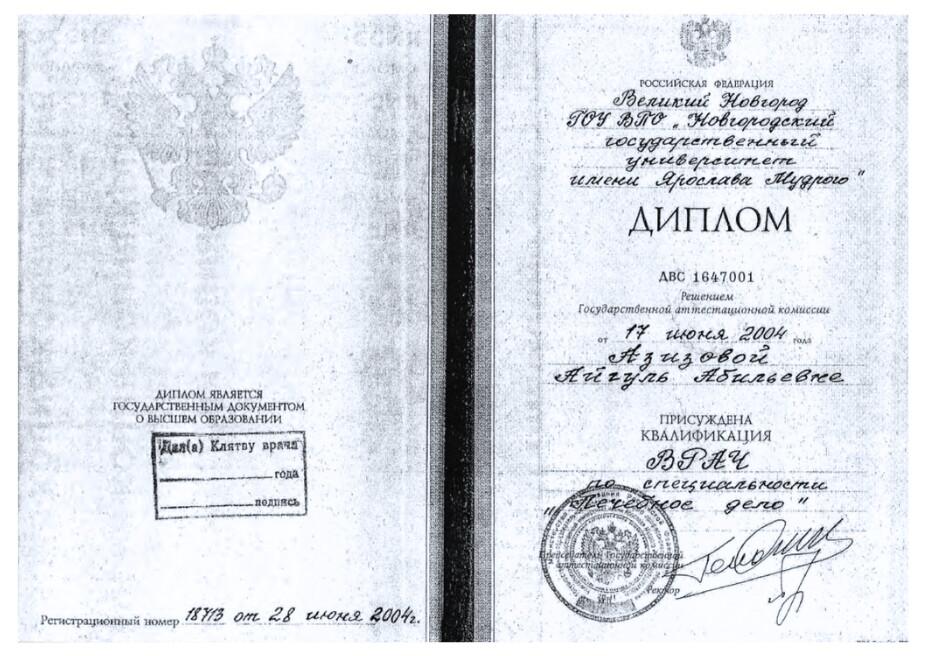 ДИПЛОМ ЯВЛЯЕТСЯ
ГОСУДАРСТВЕННЫМ ДОКУМЕНТОМ
О ВЫСШЕМ ОБРАЗОВАНИИ
Дал(а) Клятву врача
года
подпись
Регистрационный номер 18713 от 28 июня 2004г.
РОССИЙСКАЯ ФЕДЕРАЦИЯ
Великий Новгород
ГОУ ВПО „Новгородский
государственный
университет
имени Ярослава Мудрого"
ДИПЛОМ
ДВС 1647001
Решением
Государственной аттестационной комиссии
от 17 июня 2004 года
Азизовой
Айгуль Абильевне
ПРИСУЖДЕНА
КВАЛИФИКАЦИЯ
ВРАЧ
по специальности
„Лечебное дело"
Председатель Государственной
аттестационной комиссии
Ректор